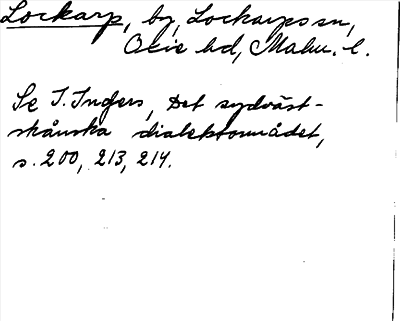 Lockarp, by, Lockarps sn,
Oxie hd, Malm. l.
Se I. Ingers, Det sydväst-
skånska dialektområdet,
s. 200, 213, 214.